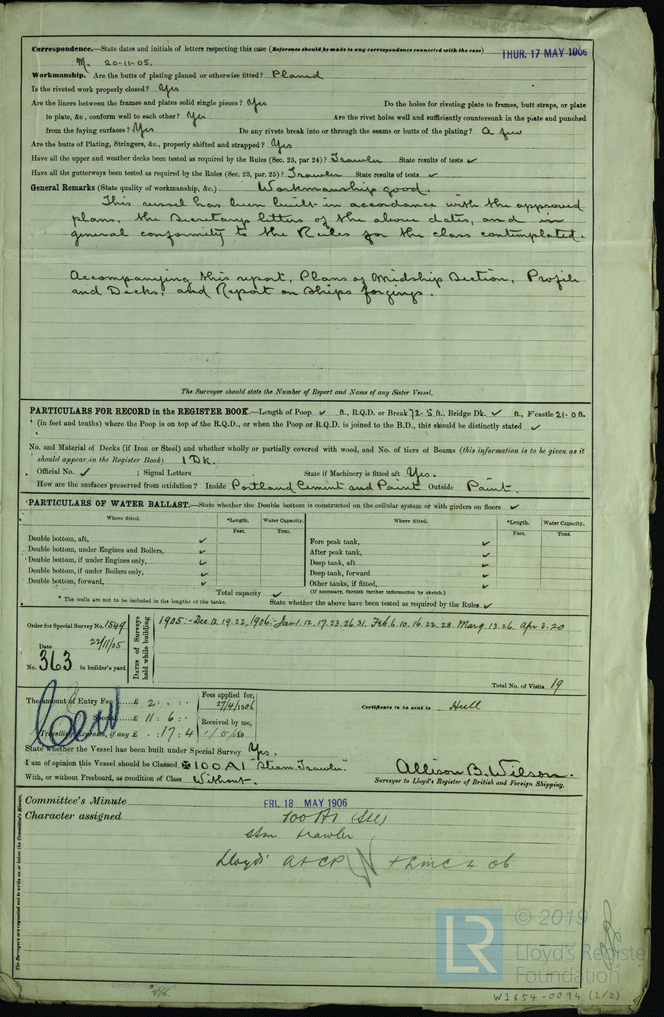 Correspondence.—State dates and initials of letters respecting this case (Reference should be made to any correspondence connected with the case) THUR. 17 MAY 1906
M. 20-11-05.
Workmanship. Are the butts of plating planed or otherwise fitted? Planed
Is the riveted work properly closed? Yes
Are the liners between the frames and plates solid single pieces? Yes Do the holes for riveting plate to frames, butt straps, or plate
to plate, &c., conform well to each other? Yes Are the rivet holes well and sufficiently countersunk in the plate and punched
from the faying surfaces? Yes Do any rivets break into or through the seams or butts of the plating? A few
Are the butts of Plating, Stringers, &c., properly shifted and strapped? Yes
Have all the upper and weather decks been tested as required by the Rules (Sec. 23, par 24)? Trawler State results of tests ✓
Have all the gutterways been tested as required by the Rules (Sec. 23, par. 25)? Trawler State results of tests. ✓
General Remarks (State quality of workmanship, &c.) Workmanship good.
This vessel has been built in accordance with the approved
plans, the Secretary letters of the above dates, and in
general conformity to the Rules for the class contemplated.
Accompanying this report, Plans of Midship Section, Profile
and Decks, and Report on Ships forgings.
The Surveyor should state the Number of Report and Name of any Sister Vessel.
PARTICULARS FOR RECORD in the REGISTER BOOK.—Length of Poop ✓ ft., R.Q.D. or Break 72.5 ft., Bridge Dk. ✓ ft., F'castle 21.0 ft.
(in feet and tenths) where the Poop is on top of the R.Q.D., or when the Poop or R.Q.D. is joined to the B.D., this should be distinctly stated ✓
No. and Material of Decks (if Iron or Steel) and whether wholly or partially covered with wood, and No. of tiers of Beams (this information is to be given as it
should appear in the Register Book) 1 Dk.
Official No. ✓ ; Signal Letters State if Machinery is fitted aft Yes.
How are the surfaces preserved from oxidation? Inside Portland Cement and Paint Outside Paint.
PARTICULARS OF WATER BALLAST.—State whether the Double bottom is constructed on the cellular system or with girders on floors ✓
Where fitted. *Length. Water Capacity. Where fitted. *Length. Water Capacity.
Feet. Tons. Feet. Tons.
Double bottom, aft, ✓ Fore peak tank, ✓
Double bottom, under Engines and Boilers, ✓ After peak tank, ✓
Double bottom, if under Engines only, ✓ Deep tank, aft ✓
Double bottom, if under Boilers only, ✓ Deep tank, forward ✓
Double bottom, forward, ✓ Other tanks, if fitted, ✓
Total capacity ✓ (If necessary, furnish further information by sketch.)
* The wells are not to be included in the lengths of the tanks. State whether the above have been tested as required by the Rules ✓
Order for Special Survey No. 1549
Date 22/11/05
No. 363 in builder's yard.
Dates of Surveys held while building
1905:- Dec. 12. 19. 22, 1906:- Jan 1. 12. 17. 23. 26. 31. Feb 6. 10. 16. 22. 28. Mar 9. 13. 26. Apr 3. 20
Total No. of Visits 19
The amount of Entry Fee £ 2 : . : . Fees applied for, 27/4/1906 Certificate to be sent to Hull
Special £ 11 : 6 : . Received by me,
Travelling Expenses, if any £ . : 17 : 4
State whether the Vessel has been built under Special Survey Yes.
I am of opinion this Vessel should be Classed ✠100A1 "Steam Trawler." Allison B. Wilson.
With, or without Freeboard, as condition of Class Without. Surveyor to Lloyd's Register of British and Foreign Shipping.
Committee's Minute FRI. 18 MAY 1906
Character assigned 100A1 (Stl)
Stm trawler
Lloyds' A&CP +LMC 4.06
The Surveyors are requested not to write on or below the Committee's Minute.
© 2019
LR Lloyd's Register
Foundation
W1654-0094 (2/2)